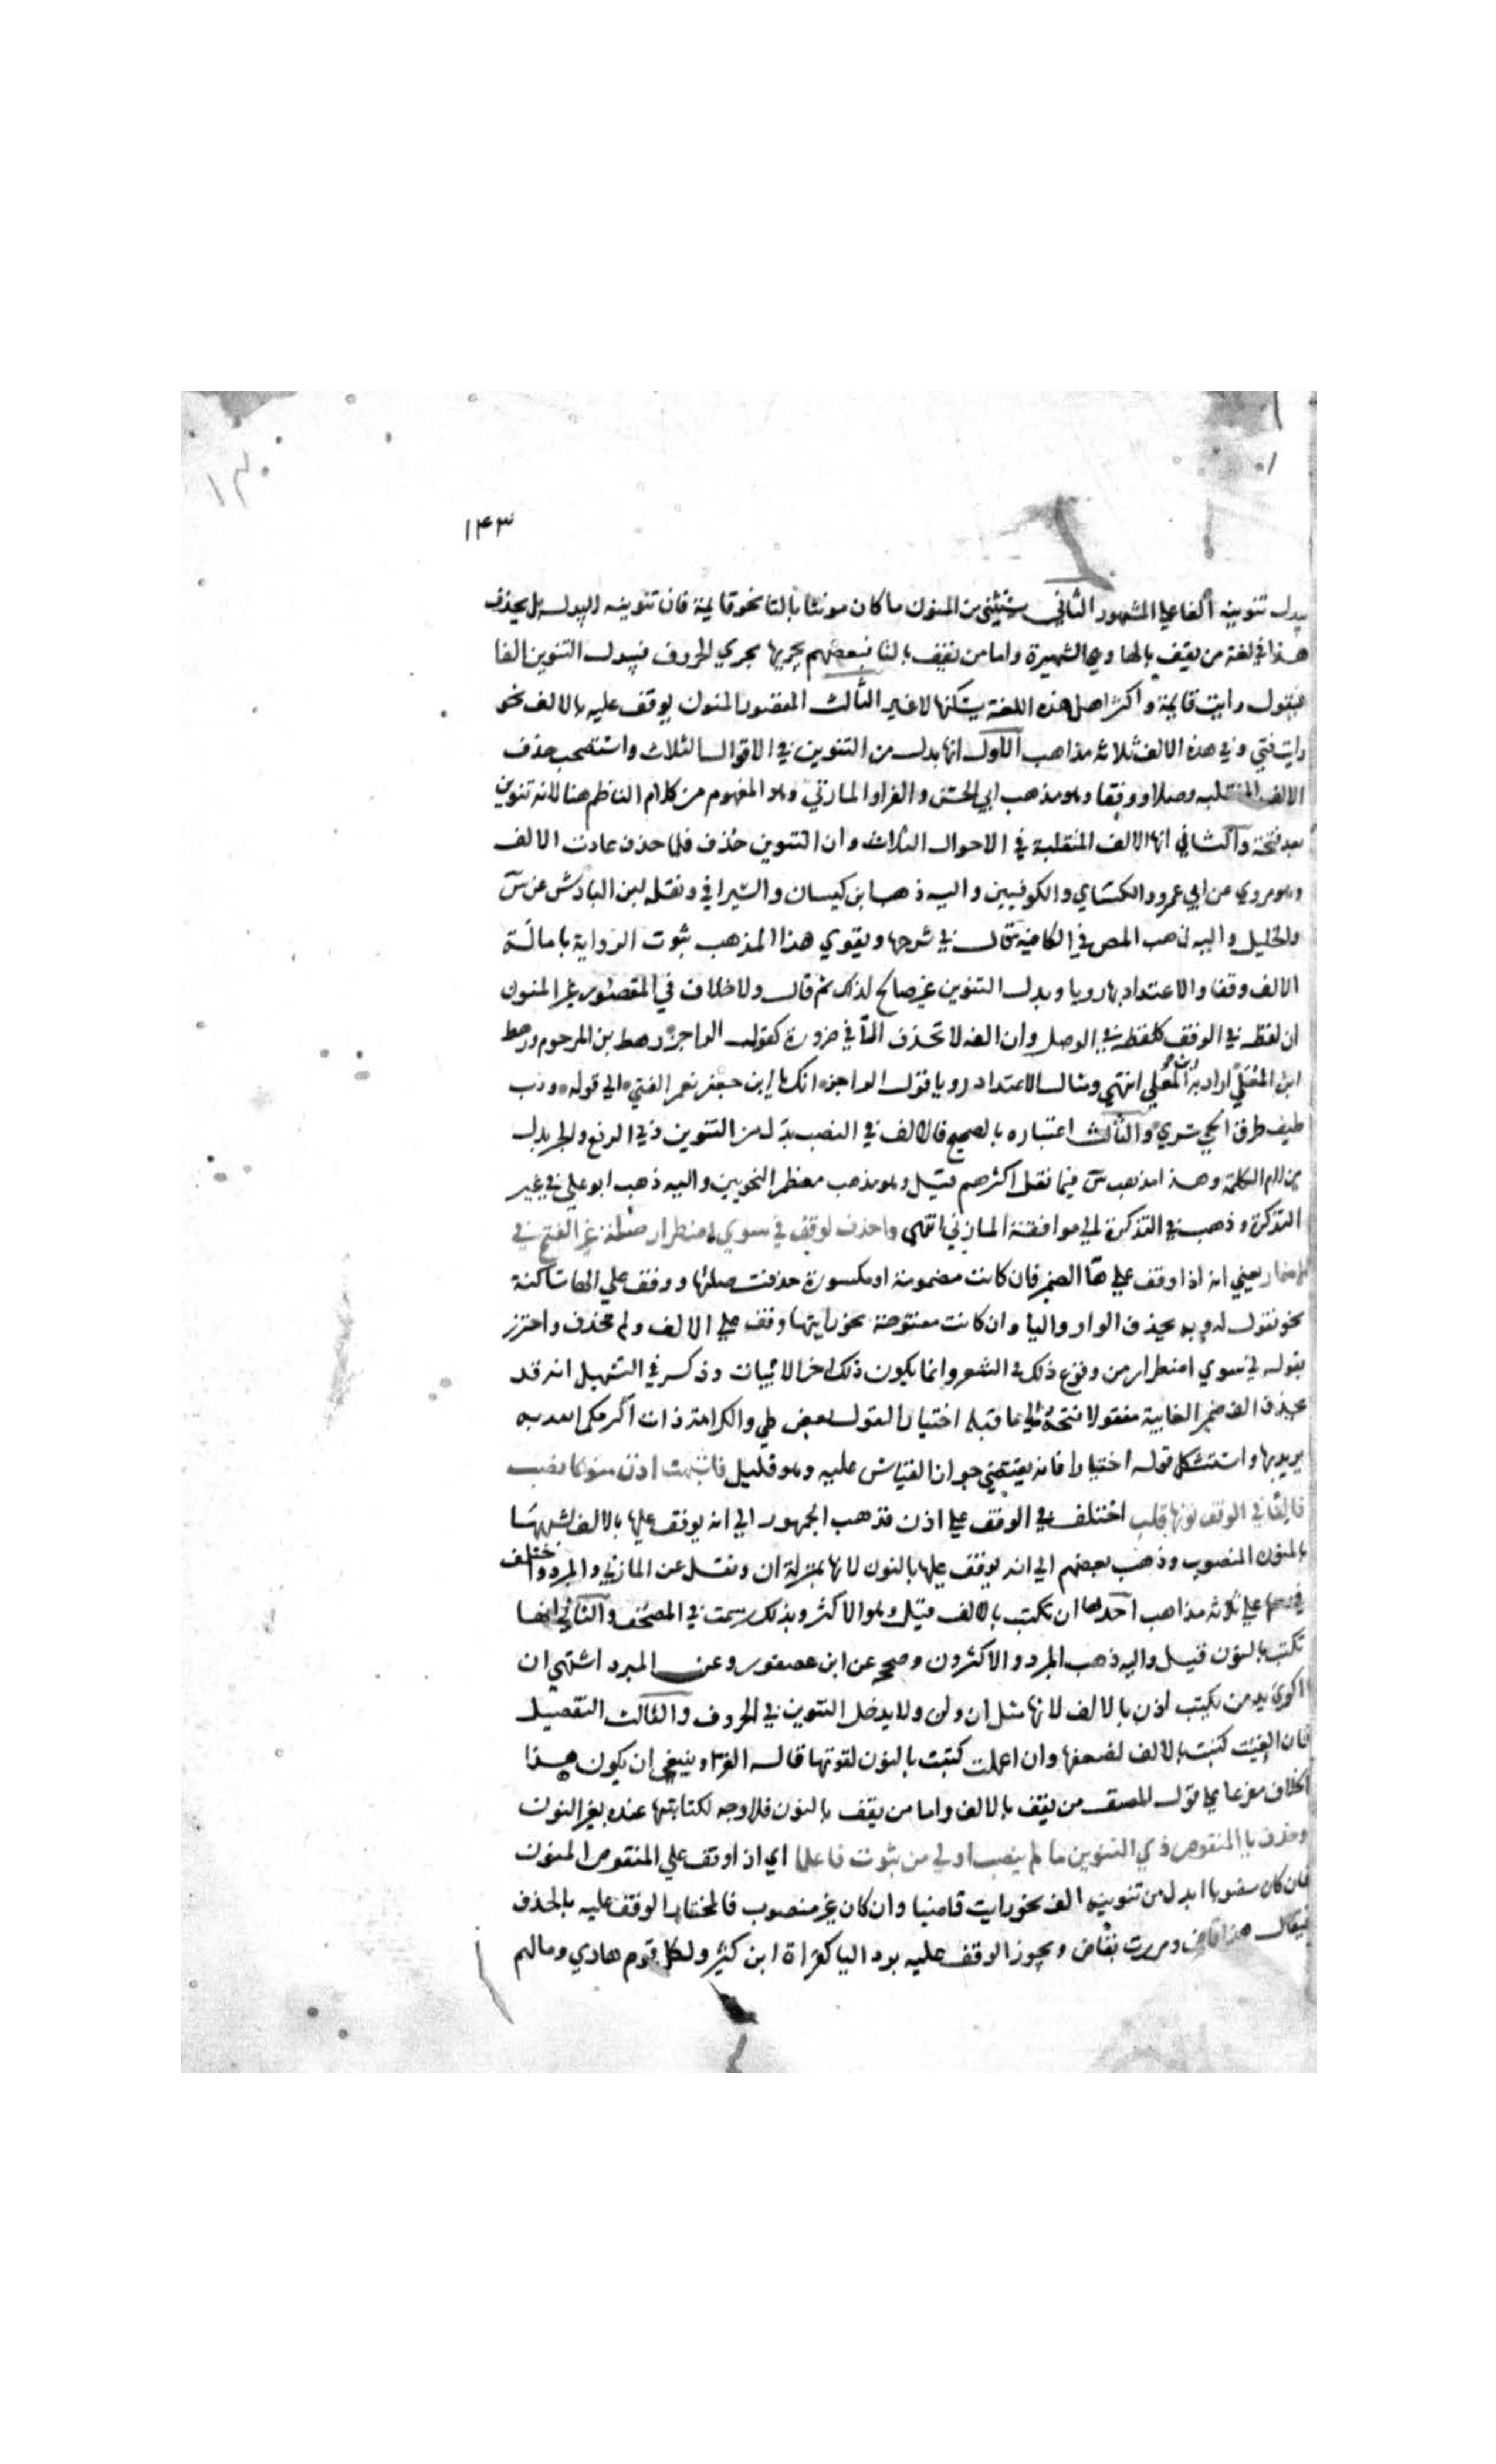 ١٤٣
يبدل تنوينه ألفا علي المشهور الثاني يستثني من المنون ما كان مونثا بالتا نحو قايمة فان تنوينه لايبدل بل يحذف
هذا في لغة من يقف بالها وهي الشهيرة واما من يقف بالتا فبعضهم يجريها مجري الحروف فيبدل التنوين الفا
فيقول رايت قايمتا واكثر اهل هذه اللغة يسكنها لاغير الثالث المقصور المنون يوقف عليه بالالف نحو
رايت فتي وفي هذه الالف ثلاثة مذاهب الاول انها بدل من التنوين في الاحوال الثلاث واستصحب حذف
الالف المنقلبه وصلا ووقفا وهو مذهب ابي الحسن والفرا والمازني وهو المفهوم من كلام الناظم هنا لانه تنوين
بعد فتحة والثاني انها الالف المنقلبة في الاحوال الثلاث وان التنوين حذف فلما حذف عادت الالف
وهو مروي عن ابي عمرو والكساي والكوفيين واليه ذهب ابن كيسان والسيرافي ونقله ابن الباذش عن س
والخليل واليه ذهب المص في الكافيه قال في شرحها ويقوي هذا المذهب ثبوت الرواية بامالة
الالف وقفا والاعتداد بها رويا وبدل التنوين غير صالح لذلك ثم قال ولا خلاف في المقصور غير المنون
ان لفظه في الوقف كلفظه في الوصل وان الفه لا تحذف الا في ضرورة كقول الراجز رهط بن المرجوم ورهط
ابن المعلي اراد به ابن المعلي انتهي ومثال الاعتداد رويا قول الراجز انك يا ابن جعفر نعم الفتي الي قوله ورب
طيف طرق الحي سري والثالث اعتباره بالصحيح فالالف في النصب بدل من التنوين وفي الرفع والجر بدل
من لام الكلمة وهذا مذهب س فيما نقل اكثرهم قيل وهو مذهب معظم النحويين واليه ذهب ابو علي في غير
التذكرة وذهب في التذكرة الي موافقة المازني انتهي واحذف لوقف في سوي اضطرار صلة غير الفتح في
الاضمار يعني انه اذا وقف علي ها الضمير فان كانت مضمومة او مكسورة حذفت صلتها ووقف علي الها ساكنة
نحو تقول له وبه بحذف الواو واليا وان كانت مفتوحة نحو رايتها وقف علي الالف ولم تحذف واحترز
بقوله في سوي اضطرار من وقوع ذلك في الشعر وانما يكون ذلك اخر الابيات وذكر في التسهيل انه قد
يحذف الف ضمير الغايبة منقولا فتحه الي ما قبله اختيارا كقول بعض طي والكرامة ذات اكرمكم الله به
يريد بها واستشكل قوله اختيارا فانه يقتضي جواز القياس عليه وهو قليل فاشبهت اذن منونا نصب
فالفا في الوقف نونها قلب اختلف في الوقف علي اذن فذهب الجمهور الي انه يوقف عليها بالالف لشبهها
بالمنون المنصوب وذهب بعضهم الي انه يوقف عليها بالنون لانها بمنزلة ان ونقل عن المازني والمبرد واختلف
في رسمها علي ثلاثة مذاهب احدها ان تكتب بالالف قيل وهو الاكثر وبذلك رسمت في المصحف والثاني انها
تكتب بالنون قيل واليه ذهب المبرد والاكثرون وصححه عن ابن عصفور وعن المبرد اشتهي ان
اكوي يد من يكتب اذن بالالف لانها مثل ان ولن ولا يدخل التنوين في الحروف والثالث التفصيل
فان الغيت كتبت بالالف لضعفها وان اعملت كتبت بالنون لقوتها قاله الفرا وينبغي ان يكون هذا
الخلاف مفرعا علي قول من يقف بالالف واما من يقف بالنون فلا وجه لكتابتها عنده بغير النون
وحذف يا المنقوص ذي التنوين ما لم ينصب اولي من ثبوت فاعلما اي اذا وقف علي المنقوص المنون
فان كان منصوبا ابدل من تنوينه الف نحو رايت قاضيا وان كان غير منصوب فالمختار الوقف عليه بالحذف
فيقال هذا قاض ومررت بقاض ويجوز الوقف عليه برد اليا كقراة ابن كثير ولكل قوم هادي ومالهم